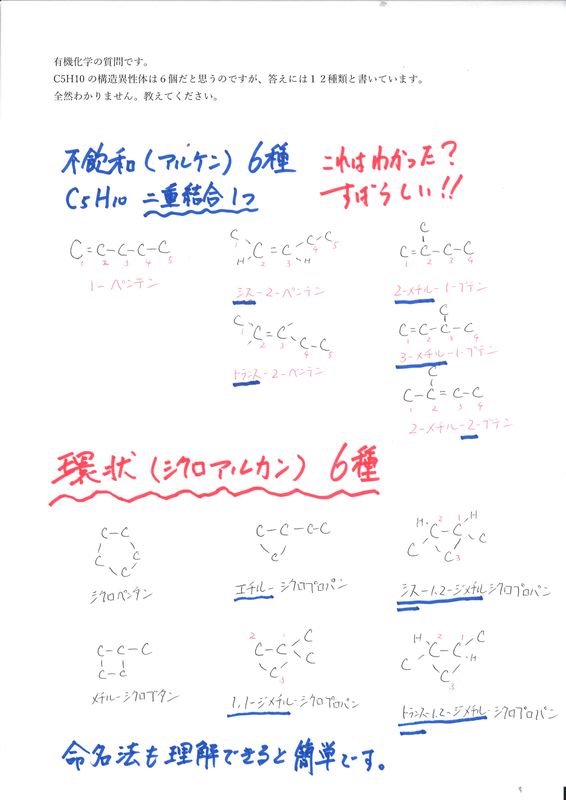 有機化学の質問です。
C5H10の構造異性体は6個だと思うのですが、答えには12種類と書いています。
全然わかりません。教えてください。
不飽和(アルケン) 6種
C5H10 二重結合1つ
これはわかった?
すばらしい!!
C=C-C-C-C
1 2 3 4 5
1-ペンテン
C C-C
H C=C H
1 2 3 4 5
シス-2-ペンテン
C
C=C
C-C
1 2 3 4 5
トランス-2-ペンテン
C
C=C-C-C
1 2 3 4
2-メチル-1-ブテン
C
C=C-C-C
1 2 3 4
3-メチル-1-ブテン
C
C-C=C-C
1 2 3 4
2-メチル-2-ブテン
環状(シクロアルカン) 6種
C-C
C C
C
シクロペンタン
C-C-C-C
C
エチル-シクロプロパン
H 2 1 H
C-C
C C C
3
シス-1.2-ジメチルシクロプロパン
C-C-C
C-C
メチル-シクロブタン
2 1 C
C-C
C C
3
1,1-ジメチル-シクロプロパン
H 2 1 C
C-C
C C H
3
トランス-1.2-ジメチル-シクロプロパン
命名法も理解できると簡単です。